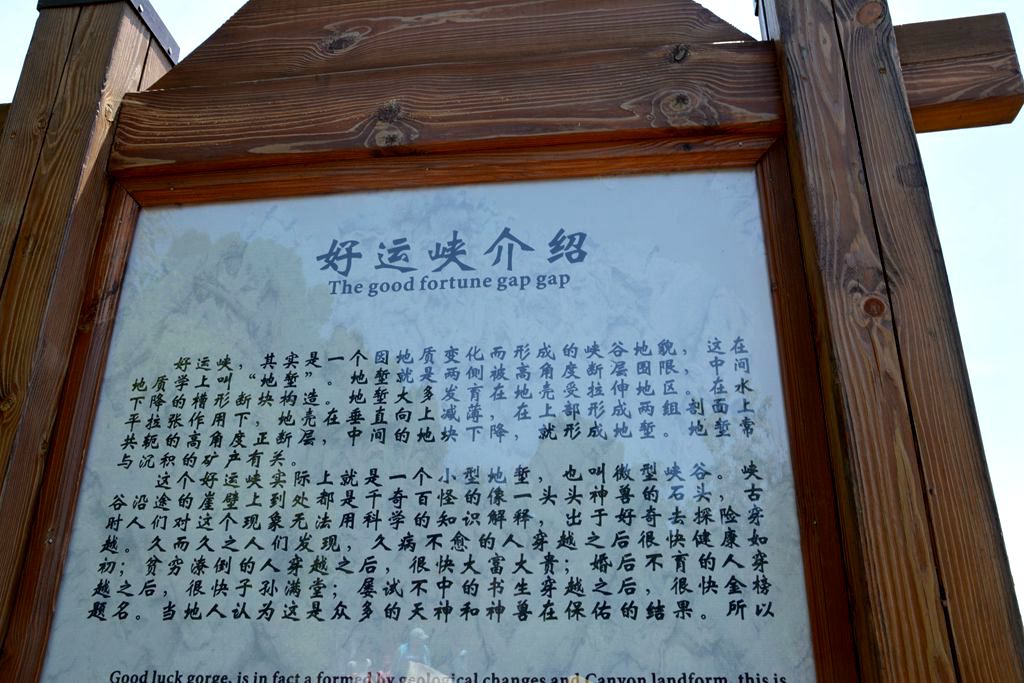 好运峡介绍
The good fortune gap gap
好运峡，其实是一个因地质变化而形成的峡谷地貌，这在
地质学上叫“地堑”。地堑就是两侧被高角度断层围限，中间
下降的槽形断块构造。地堑大多发育在地壳受拉伸地区。在水
平拉张作用下，地壳在垂直向上减薄，在上部形成两组剖面上
共轭的高角度正断层，中间的地块下降，就形成地堑。地堑常
与沉积的矿产有关。
这个好运峡实际上就是一个小型地堑，也叫微型峡谷。峡
谷沿途的崖壁上到处都是千奇百怪的像一头头神兽的石头，古
时人们对这个现象无法用科学的知识解释，出于好奇去探险穿
越。久而久之人们发现，久病不愈的人穿越之后很快健康如
初；贫穷潦倒的人穿越之后，很快大富大贵；婚后不育的人穿
越之后，很快子孙满堂；屡试不中的书生穿越之后，很快金榜
题名。当地人认为这是众多的天神和神兽在保佑的结果。所以
Good luck gorge, is in fact a formed by geological changes and Canyon landform, this is